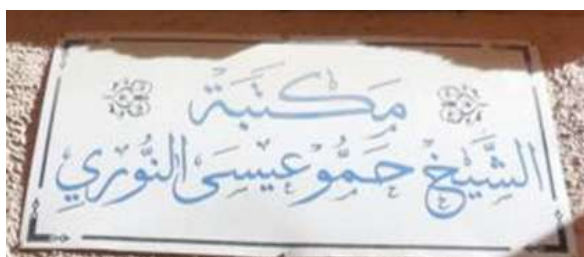 مكتبة
الشَّيْخ حَمُّو عِيسَى النُّورِي